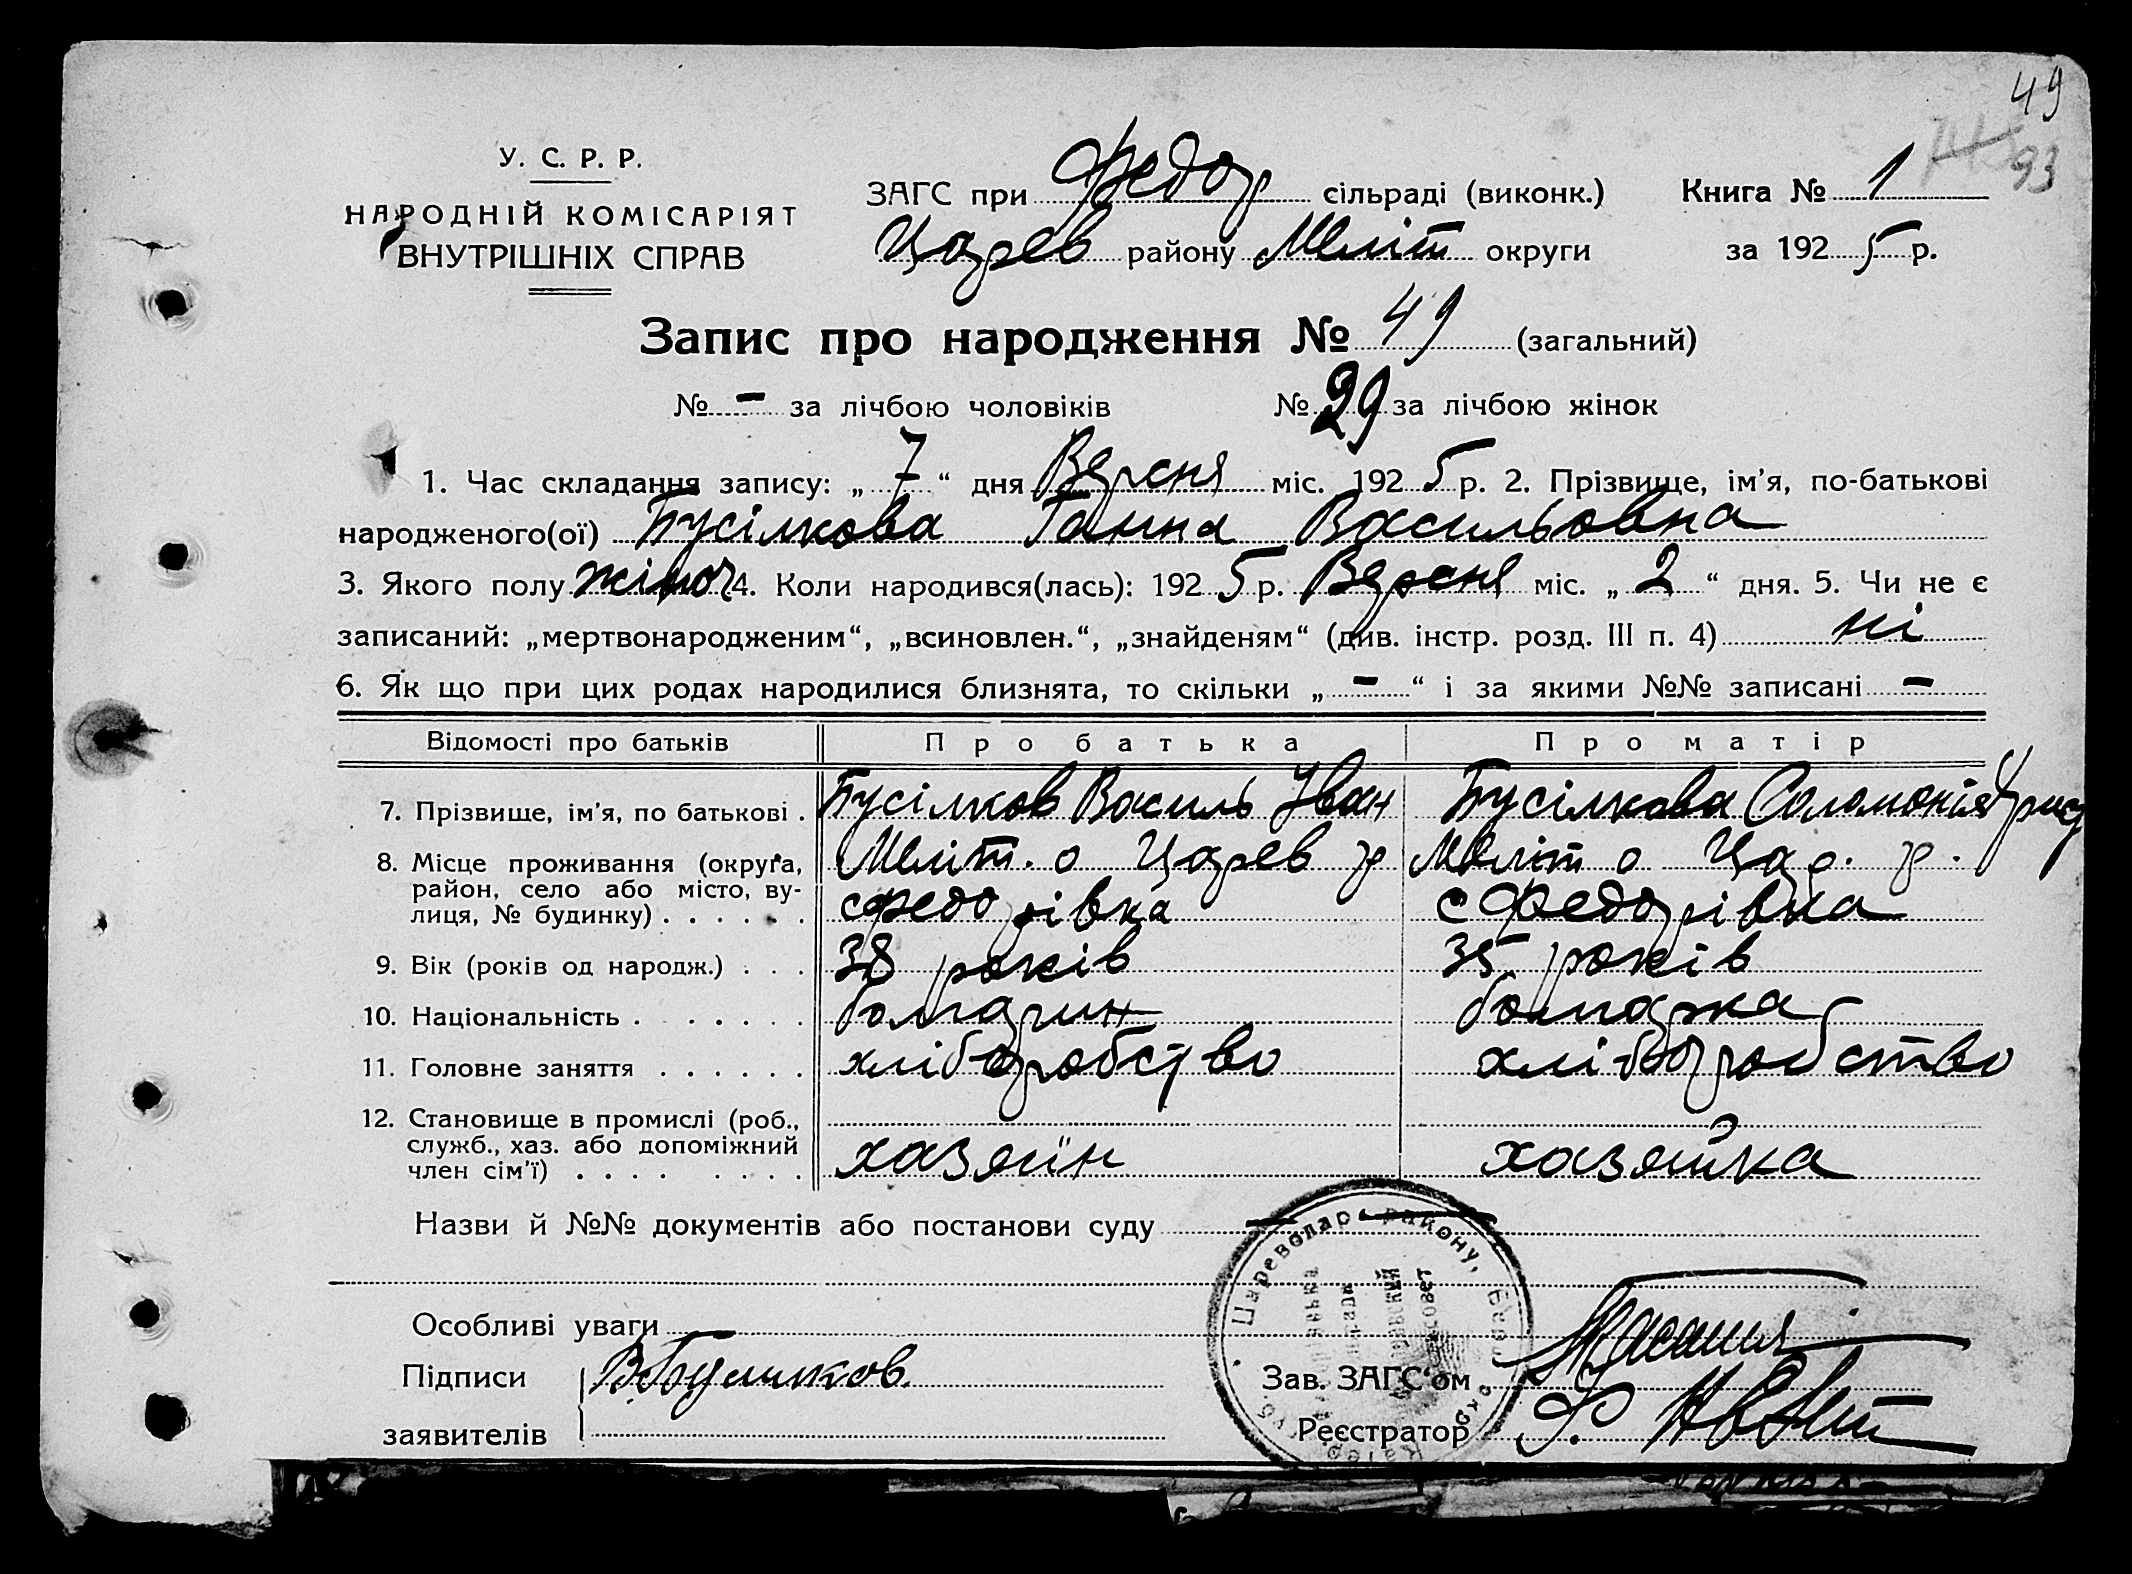 49
93
У. С. Р. Р.
НАРОДНІЙ КОМІСАРІЯТ
ВНУТРІШНІХ СПРАВ
ЗАГС при Федор сільраді (виконк.) Книга № 1
Царев району Меліт округи за 1925 р.
Запис про народження № 49 (загальний)
№ - за лічбою чоловіків № 29 за лічбою жінок
1. Час складання запису: „7“ дня Вересня міс. 1925 р. 2. Прізвище, ім'я, по-батькові
народженого(ої) Бусілкова Ганна Васильовна
3. Якого полу жіноч 4. Коли народився(лась): 1925 р. Вересня міс. „2“ дня. 5. Чи не є
записаний: „мертвонародженим“, „всиновлен.“, „знайденям“ (див. інстр. розд. III п. 4) ні
6. Як що при цих родах народилися близнята, то скільки „-“ і за якими №№ записані -
Відомості про батьків Про батька Про матір
7. Прізвище, ім'я, по батькові . Бусілков Василь Іван Бусілкова Соломонія
8. Місце проживання (округа, Меліт. о Царев р Меліт о Цар. р.
район, село або місто, ву-
лиця, № будинку) . . . . . . с Федорівка с Федорівка
9. Вік (років од народж.) . . . 38 років 35 років
10. Національність . . . . . . . болгарин болгарка
11. Головне заняття . . . . . . хліборобство хліборобство
12. Становище в промислі (роб.,
служб., хаз. або допоміжний
член сім'ї) . . . . . . . . хазяїн хазяйка
Назви й №№ документів або постанови суду —
Цареводар. району,
Особливі уваги
Підписи
заявителів
Зав. ЗАГС'ом
Реєстратор